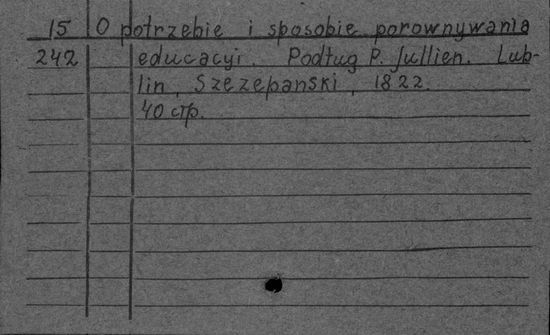 15 O potrzebie i sposobie porownywania
242 educacyi. Podług P. Jullien. Lub-
lin, Szczepanski, 1822.
40 стр.